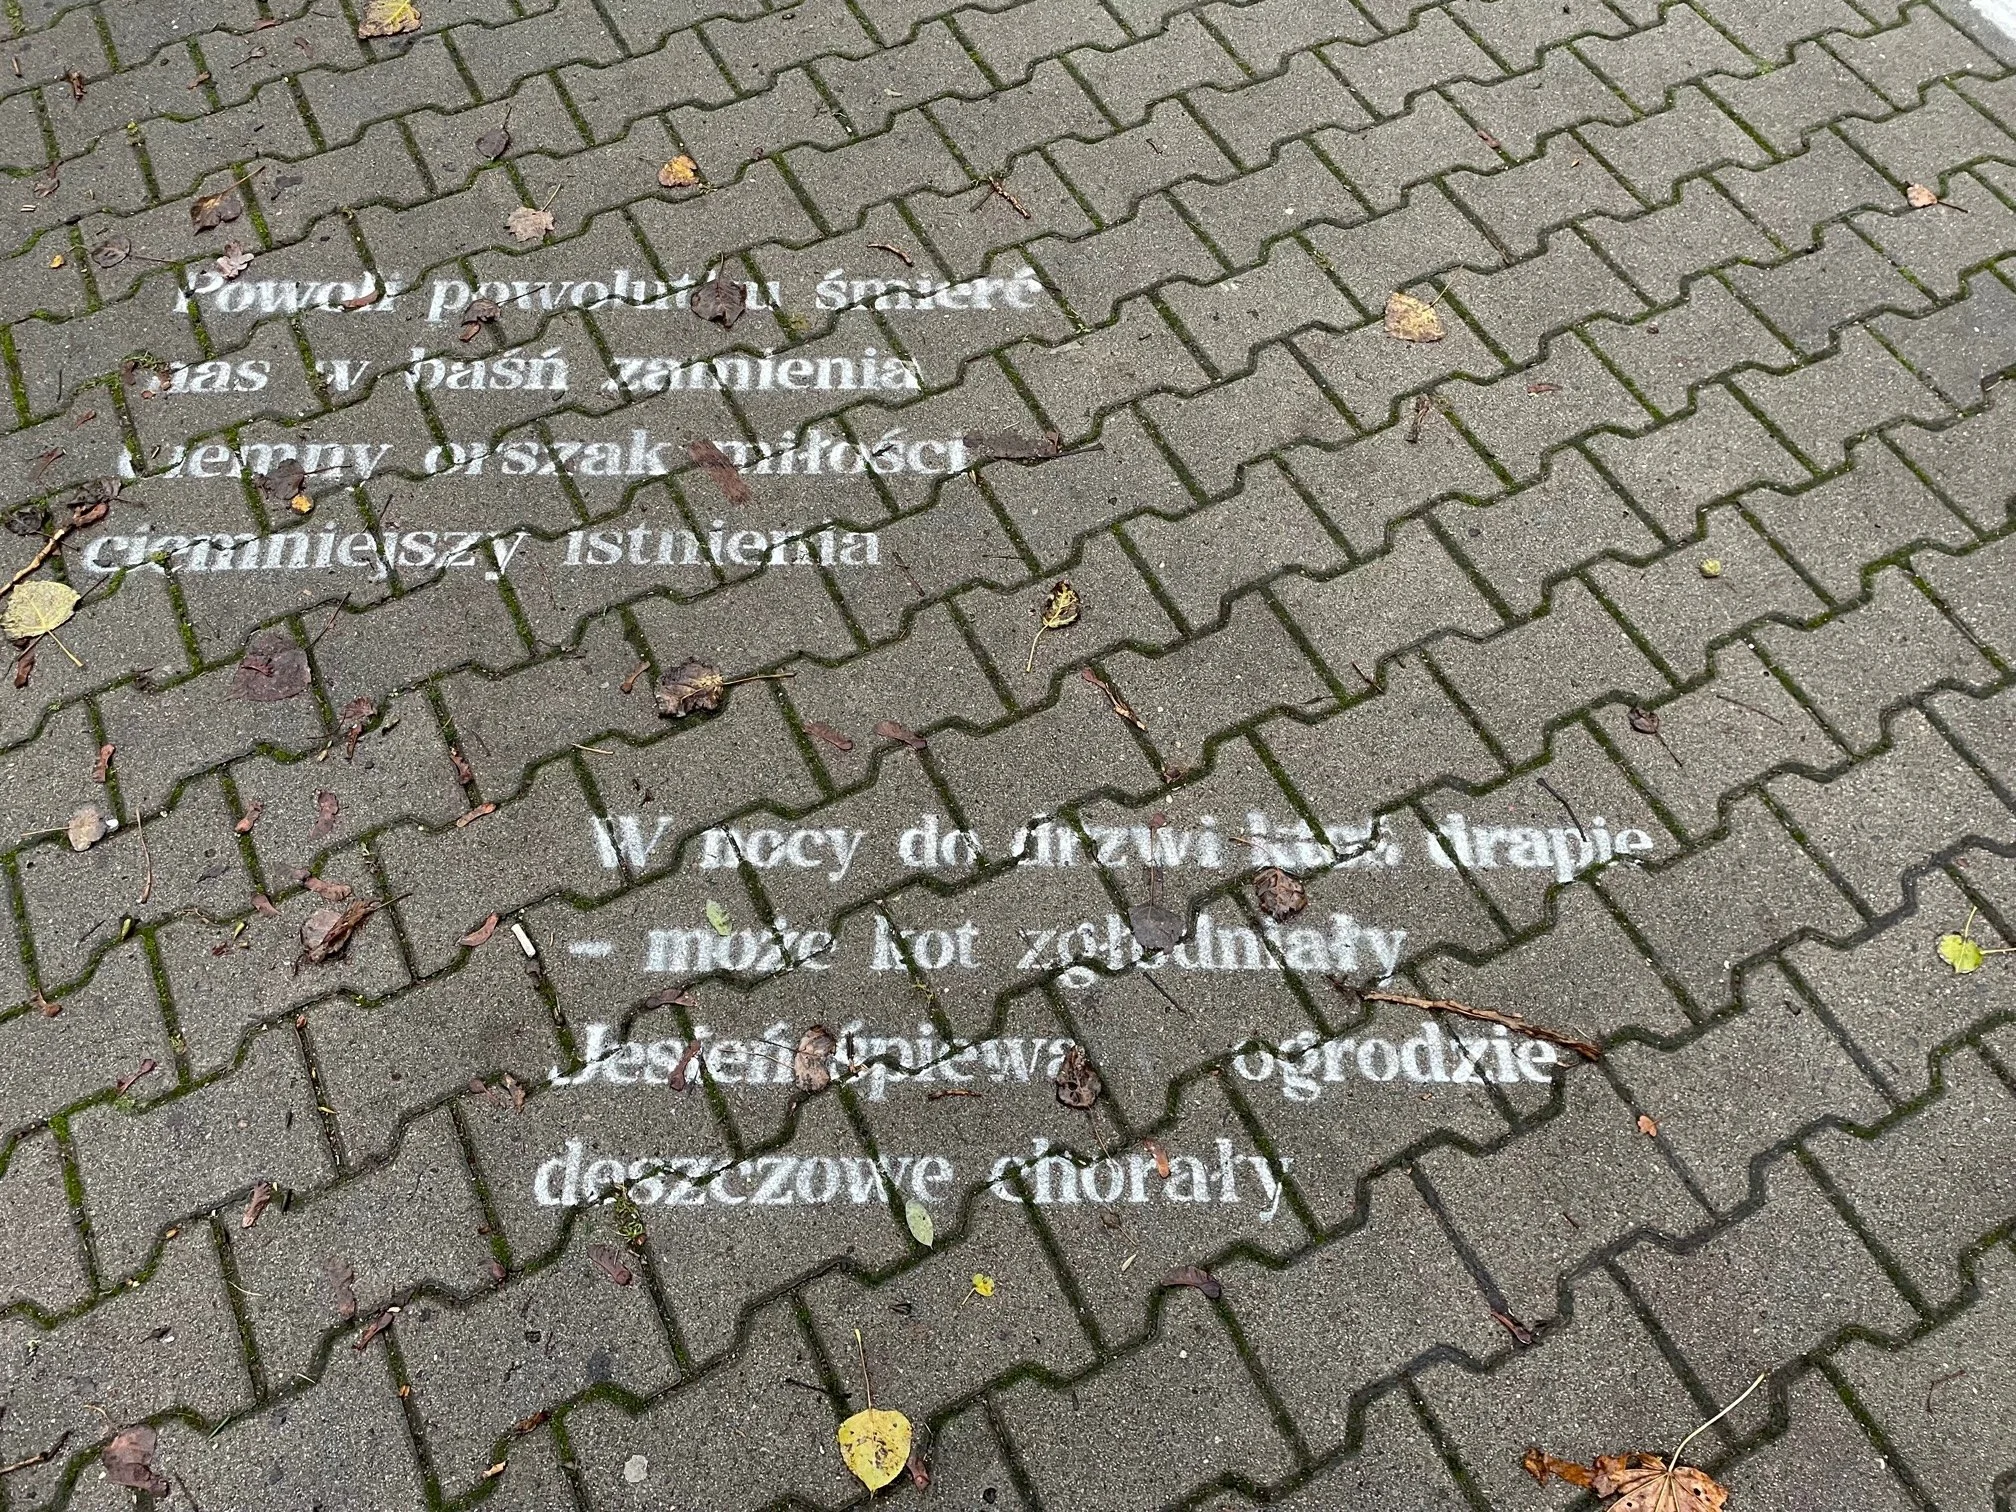 Powoli powolutku śmierć
nas w baśń zamienia
ciemny orszak miłości
ciemniejszy istnienia
W nocy do drzwi ktoś drapie
- może kot zgłodniały
Jesień śpiewa ogrodzie
deszczowe chorały